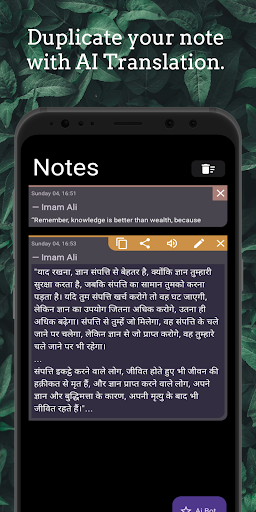 Duplicate your note
with AI Translation.
Notes
Sunday 04, 16:51
— Imam Ali
"Remember, knowledge is better than wealth, because
Sunday 04, 16:53
— Imam Ali
"याद रखना, ज्ञान संपत्ति से बेहतर है, क्योंकि ज्ञान तुम्हारी
सुरक्षा करता है, जबकि संपत्ति का सामान तुमको करना
पड़ता है। यदि तुम संपत्ति खर्च करोगे तो वह घट जाएगी,
लेकिन ज्ञान का उपयोग जितना अधिक करोगे, उतना ही
अधिक बढ़ेगा। संपत्ति से तुम्हें जो मिलेगा, वह संपत्ति के चले
जाने पर चलेगा, लेकिन ज्ञान से जो प्राप्त करोगे, वह तुम्हारे
चले जाने पर भी रहेगा।
...
संपत्ति इकट्ठे करने वाले लोग, जीवित होते हुए भी जीवन की
हक़ीकत से मृत हैं, और ज्ञान प्राप्त करने वाले लोग, अपने
ज्ञान और बुद्धिमत्ता के कारण, अपनी मृत्यु के बाद भी
जीवित रहते हैं।"...
Ai Bot